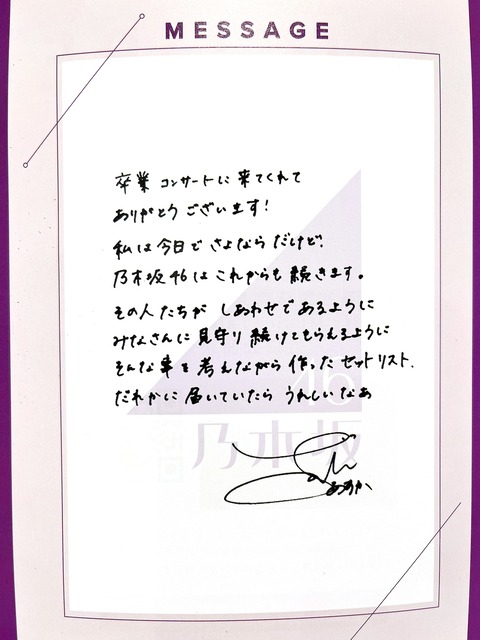 MESSAGE
卒業コンサートに来てくれて
ありがとうございます!
私は今日でさよならだけど、
乃木坂46はこれからも続きます。
その人たちが しあわせであるように
みなさんに見守り続けてもらえるように
そんな事を考えながら作ったセットリスト、
だれかに届いていたら うれしいなあ
あすか
46
乃木坂